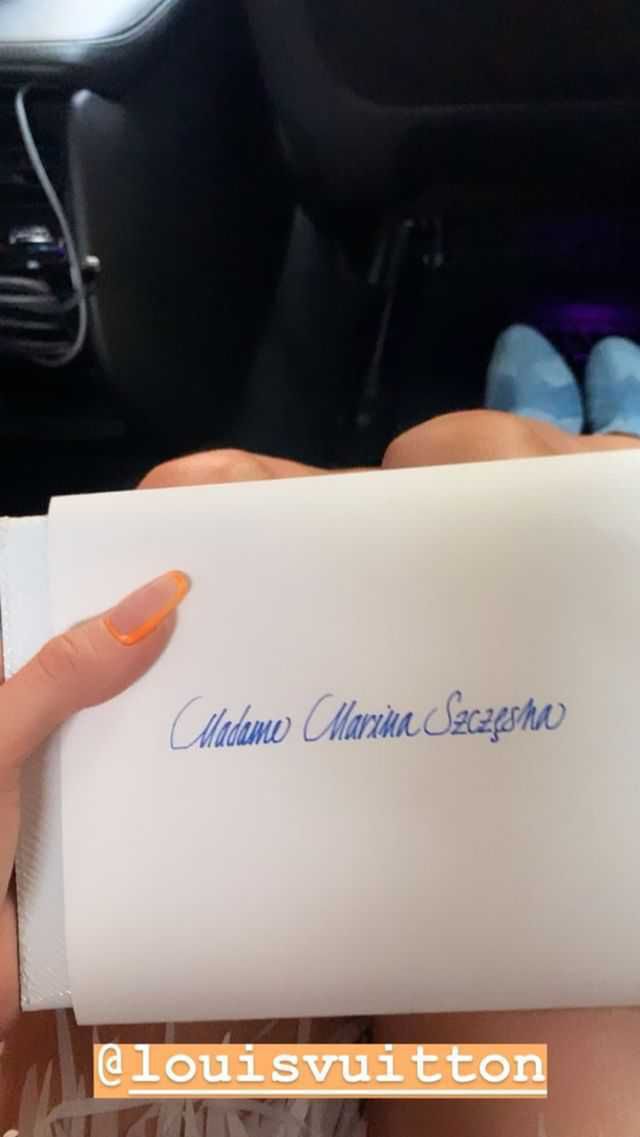 Madame Marina Szczęsna
@louisvuitton